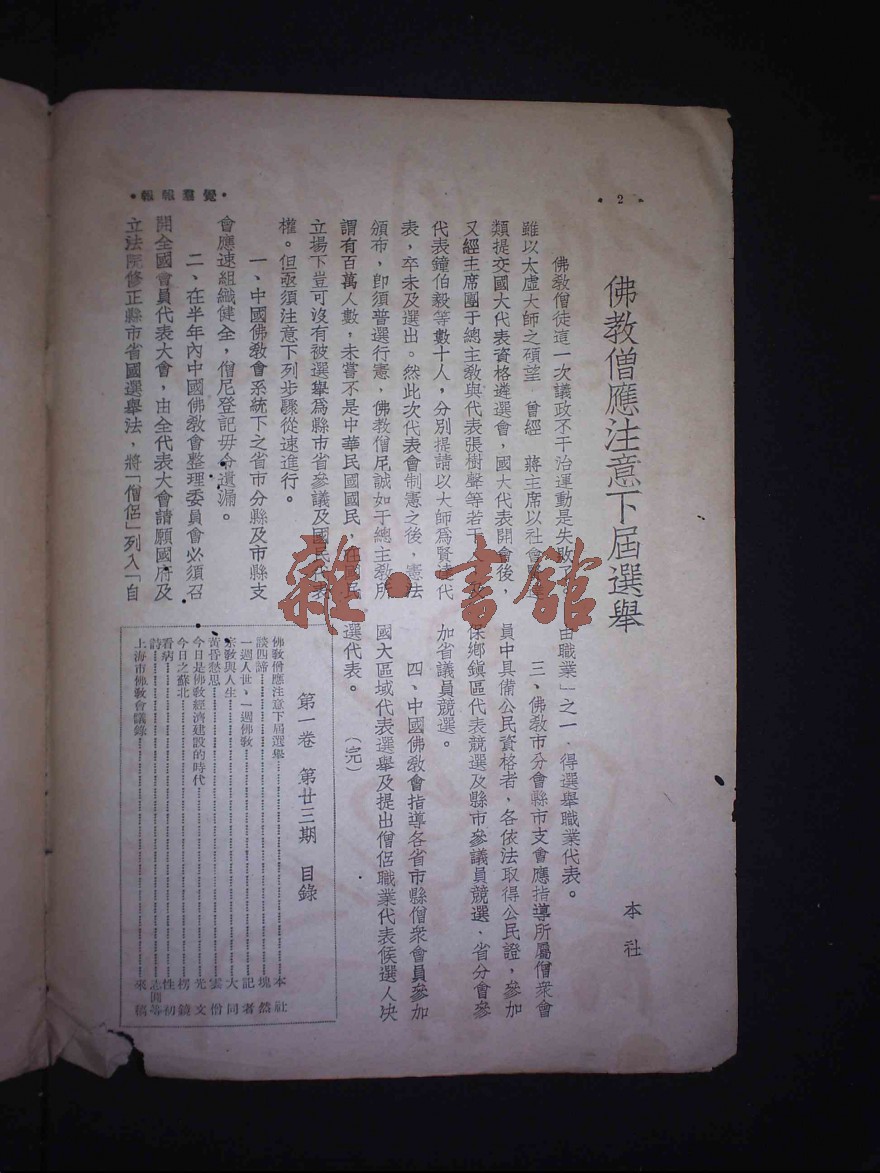 ·2·
·覺羣報報·
佛教僧應注意下屆選舉
本社
佛教僧徒這一次議政不干治運動是失敗了
雖以太虛大師之碩望 曾經 蔣主席以社會賢達
類提交國大代表資格遴選會，國大代表開會後，
又經主席團于總主教與代表張樹聲等若干人及
代表鐘伯毅等數十人，分別提請以大師爲賢達代
表，卒未及選出。然此次代表會制憲之後，憲法
頒布，卽須普選行憲，佛教僧尼誠如于總主教所
謂有百萬人數，未嘗不是中華民國國民，在國民
立場下豈可沒有被選舉爲縣市省參議及國民代表
權。但亟須注意下列步驟從速進行。
一、中國佛教會系統下之省市分縣及市縣支
會應速組織健全，僧尼登記毋令遺漏。
二、在半年內中國佛教會整理委員會必須召
開全國會員代表大會，由全代表大會請願國府及
立法院修正縣市省國選舉法，將「僧侶」列入「自
由職業」之一．得選舉職業代表。
三、佛教市分會縣市支會應指導所屬僧衆會
員中具備公民資格者，各依法取得公民證，參加
保鄉鎮區代表競選及縣市參議員競選、省分會參
加省議員競選。
四、中國佛教會指導各省市縣僧衆會員參加
國大區域代表選舉及提出僧侶職業代表候選人決
選代表。 （完）
第一卷 第廿三期 目錄
佛教僧應注意下屆選舉……本社
談四諦……塊然
一週人世、一週佛教……記者
宗教與人生……大同
黃昏愁思……雲份
今日是佛教經濟建設的時代……光文
今日之蘇北……楞鏡
看病……性初
詩……志圓等
上海市佛教會議錄……來稿
雜·書館